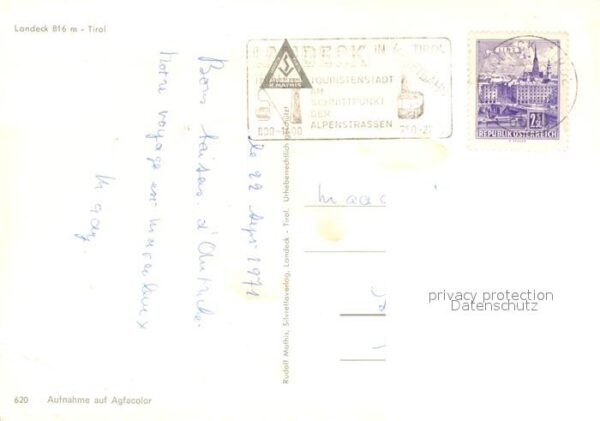 Landeck 816 m - Tirol
LANDECK IN TIROL
TOURISTENSTADT
AM
SCHNITTPUNKT
DER
ALPENSTRASSEN
R. MATHIS
REPUBLIK ÖSTERREICH
le 22 Sept 1971
Bons baisers d'Autriche.
Notre voyage est merveilleux
Rudolf Mathis, Silvrettaverlag, Landeck - Tirol. Urheberrechtlich geschützt
privacy protection
Datenschutz
620 Aufnahme auf Agfacolor